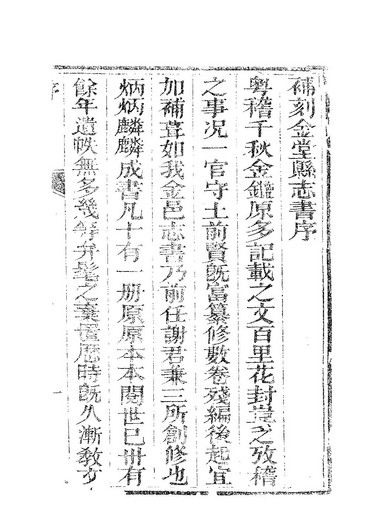 補刻金堂縣志書序
粵稽千秋金鑑原多記載之文百里花封豈乏攷稽
之事況一官守土前賢旣富纂修數卷殘編後起宜
加補葺如我金邑志書乃前任謝君兼三所創修也
炳炳麟麟成書凡十有一册原原本本閱世已卅有
餘年遺帙無多幾等弁髦之棄舊曆時旣久漸敎亥
序
一